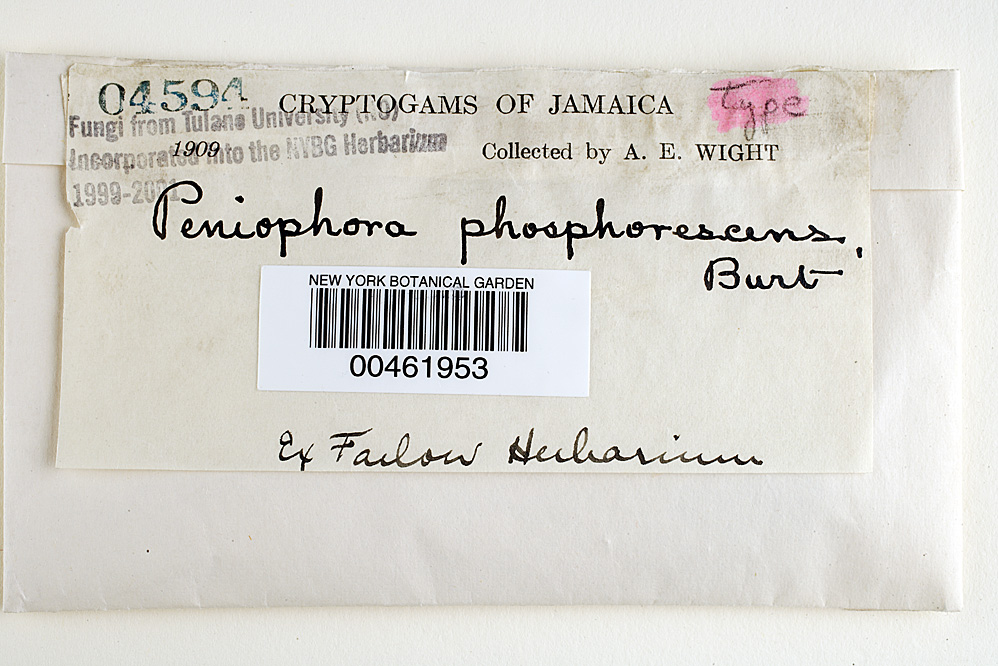 04594
CRYPTOGAMS OF JAMAICA
type
Fungi from Tulane University (NO)
Incorporated into the NYBG Herbarium
1999-2001
1909
Collected by A. E. WIGHT
Peniophora phosphorescens,
Burt
NEW YORK BOTANICAL GARDEN
00461953
Ex Farlow Herbarium